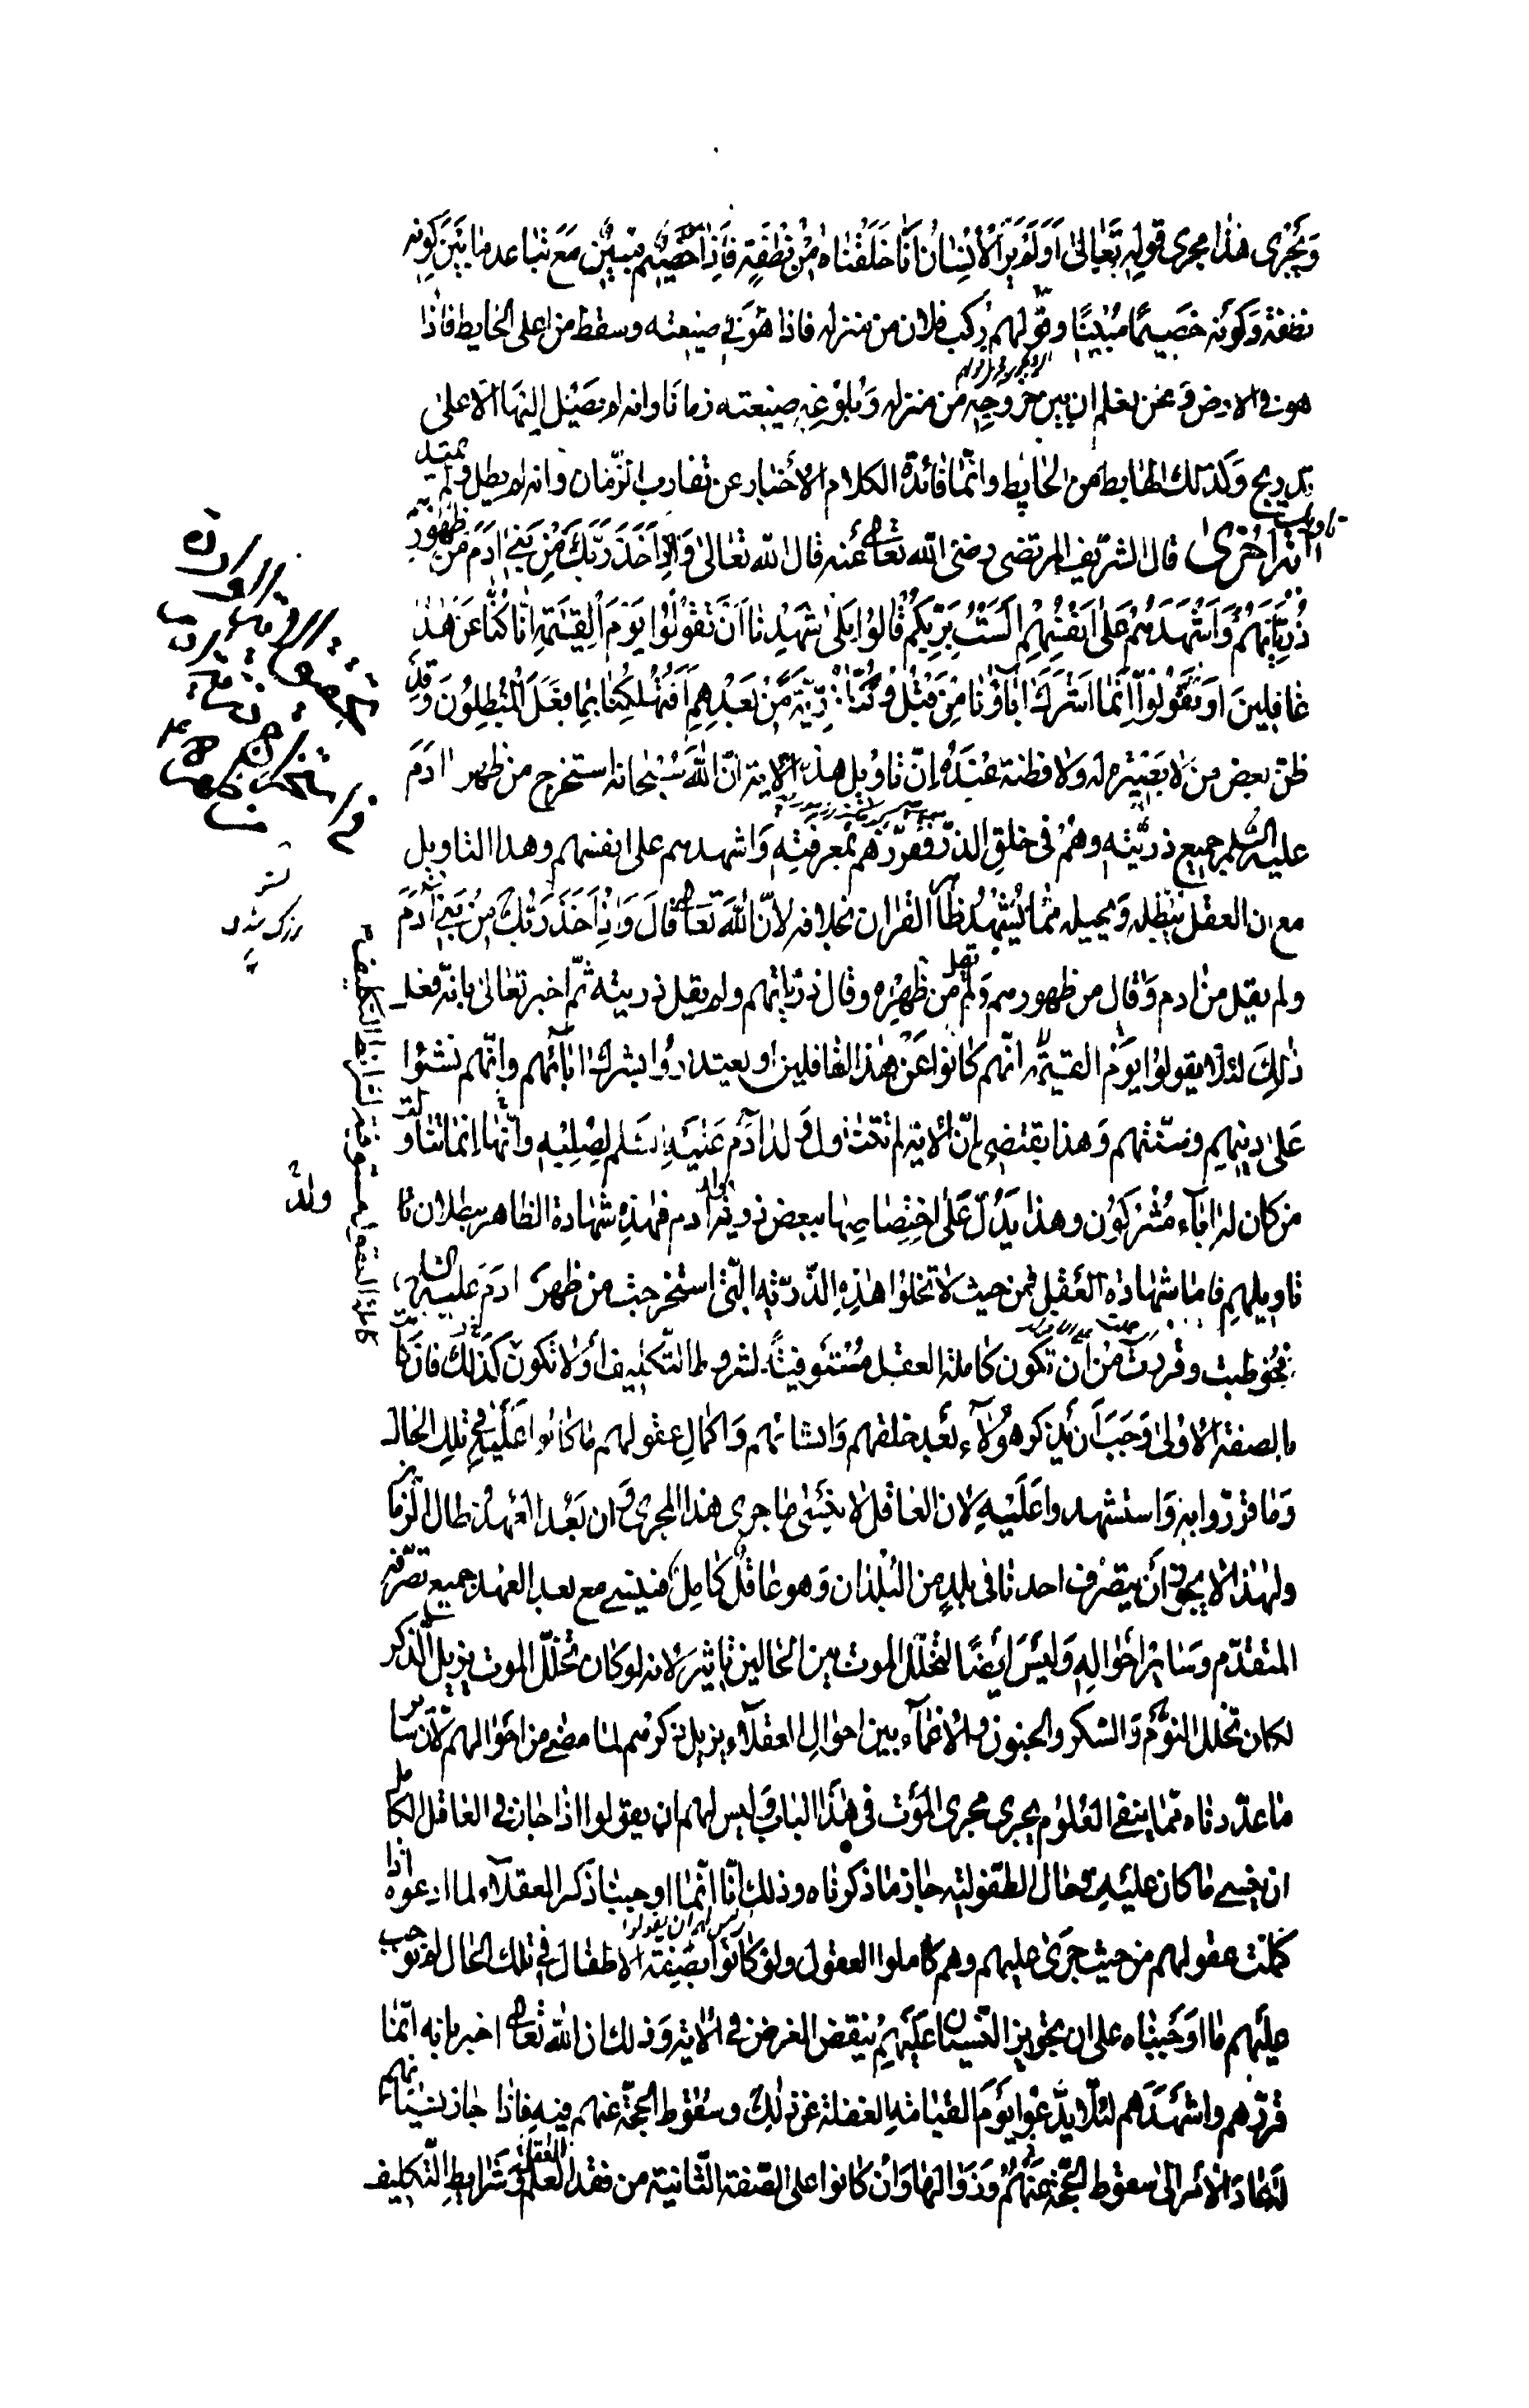 وَيَجْرى هٰذا مجرى قوله تَعٰالىٰ اَوَلَمْ يَرَ الْاِنسٰانُ اَنّٰا خَلَقْنٰاهُ مِنْ نُطْفَةٍ فَاِذٰا هُوَ خَصيمٌ مُبينٌ مَعَ تباعد مٰا بَيْنَ كونه
نطفة وَكَونه خَصيمًا مُبينًا وقولهم رُكب فلان من منزله فاذا هُوَ فى ضيعته وسقط من اعلى الحايط فاذا
هو فى الارض وَنحن نعلم ان بين خروجِه من منزله وَبلوغه ضيعته زمانا وانه لم يَصِل اليهَا الّا على
تدريج وَكذلك الهابط من الحايط وانّما فائدة الكلام الأخبار عن تقارب الزّمان وانه لم يطل ولم يمتد
تاويل اية اُخرىٰ قال الشريف المرتضى رضى الله تعالى عنه قال الله تعٰالىٰ وَاِذْ اَخَذَ رَبُّكَ مِنْ بَنى اٰدَمَ مِنْ ظهُورِهِمْ
ذُرِّيّاتِهُمْ وَاَشْهَدَهُمْ عَلىٰ اَنفُسِهِمْ اَلَسْتُ بِرَبِّكُمْ قٰالُوا بَلىٰ شَهِدْنٰا اَنْ تَقُولُوا يَوْمَ الْقِيٰمَةِ اِنّٰا كُنّٰا عَنْ هٰذٰا
غٰافِلينَ اَوْ تَقُولُوا اِنَّمٰا اَشْرَكَ اٰبٰاؤُنٰا مِنْ قَبْلُ وَكُنّٰا ذُرِّيَّةً مِنْ بَعْدِهِمْ اَفَتُهْلِكُنٰا بِمٰا فَعَلَ الْمُبْطِلُونَ وَقد
ظنّ بعض من لا بَصيرة له ولا فطنة عنده اِنّ تاويل هذه الاية انّ اللّٰهَ سُبْحٰانه استخرج من ظهر اٰدَمَ
عليه السّلم جميع ذرّيّته وهُمْ فى خلق الذرّ فقرّرهم بمعرفتِه وَاشهدهم على انفسهم وهذا التاويل
مع ان العقل يبطله وَيحيله ممّا يُشهد ظاهر القرٰان بخلافه لانّ اللّٰهَ تعالى قالَ وَاِذْ اَخَذَ رَبُّكَ مِنْ بَنى اٰدَمَ
ولم يقل من اٰدم وَقال من ظهورهم وَلم يقل من ظهِره وقال ذرّياتهم ولم يقل ذريته ثمّ اخبر تعالىٰ بانّه فعل
ذٰلِكَ لئلّا يقولوا يَوْم القيٰمة انّهم كانوا عَنْ هٰذا الغافلين او يعتذرُوا بشرك اٰبآئهم وانّهم نشئوا
عَلىٰ دينهِم وسنّتهم وَهذا يقتضى انّ الأية لم تتناول ولد اٰدَم عَليه السّلم لصلبه وانّها انما تتناول
من كان له اٰبآء مُشركون وهذا يَدُلّ عَلىٰ اختِصَاصِها ببعض ذرية ولد اٰدم فهٰذه شهادة الظاهر ببطلان
تاويلهِم فاما شهادة العقل فمن حيث لا تخلوا هٰذه الذّرّيّة الّتى استخرجت من ظهر اٰدَمَ عليه السّلم
فخُوطبت وقررت مِنْ اَن تكون كاملة العقل مُستَوفيةً لشروط التّكليف اَوْ لا تكون كَذلك فان كانت
بالصفة الاولىٰ وَجَبَ اَن يذكر هؤلآء بَعد خلقهم وَانشائهم وَاكمالِ عقولهم مٰا كانوا عَلَيْه فى تلك الحال
وَمٰا قرّروا به وَاستشهدوا عَلَيْه لان العاقل لا ينسى ما جرى هذا المجرى وَان بَعُد العهد وطال الزمان
ولهذا لا يجوز اَن يتصَرّف احدنا فى بلدٍ من البُلدان وَهو عٰاقل كامل فينسى مع بعد العهد جميع تصرّفه
المتقدّم وَسٰائر اَحْوٰاله وَليْسَ ايْضًا لتخلّل الموت بين الحالين تاثير لانه لو كان تخلّل الموت يزيل الذكر
لكان تخلل النّوْم وَالسّكر والجنون والاغمٰآء بين احوالِ العقلآء يزيل ذكرهم لما مضى من احْوالهم لانّ سائر
مٰا عدّدناه ممّا ينفى العُلوم يجرى مجرى المَوْت فى هٰذَا البٰاب وَليس لهم ان يقولوا اذا جاز فى العاقل الكامل
ان ينسى مٰا كان عليه فى حٰال الطّفوليّة جاز مٰا ذكرناه وذلك انّا انّما اوجبنا ذكر العقلآء لما ادعوه اذا
كملت عقولهم من حيث جَرىٰ عليهم وهم كاملوا العقول ولو كانوا بصفة الاطفال فى تلك الحال لم نوجب
عليهم مٰا اوجبناه على ان تجويز النّسيٰان عَلَيْهِمْ ينقض الغرض فى الأية وَذلك ان اللّٰه تعالى اخبر بانه انّما
قرّرهم واشهَدَهم لئلّا يدّعُوا يَوْمَ القيٰامة الغفلة عن ذلِكَ وسقوط الحجّة عنهم فيه فاذا جاز نسيٰانهم
لَه عٰادَ الأمر الىٰ سقوط الحجّة عنهُمْ وَزوالها وَاِن كانوا على الصّفة الثّانية من فقد العقل وشَرايط التّكليف
ولد